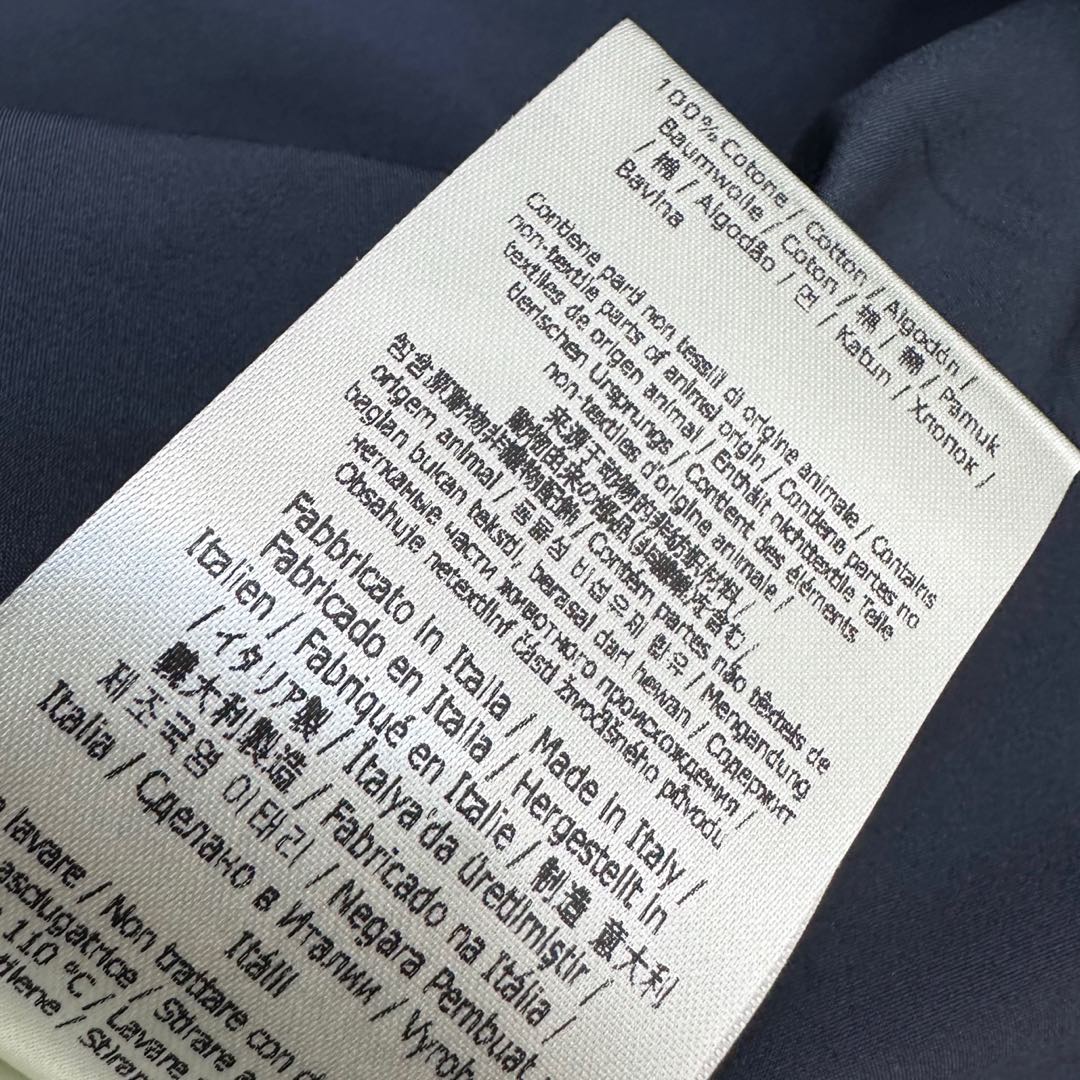 100% Cotone / Cotton / Algodón /
Baumwolle / Coton / 棉 / 棉 / Pamuk
/ 棉 / Algodão / 면 / Katun / Хлопок /
Bavlna
Contiene parti non tessili di origine animale / Contains
non-textile parts of animal origin / Contiene partes no
textiles de origen animal / Enthält nichttextile Teile
tierischen Ursprungs / Contient des éléments
non-textiles d'origine animale /
来源于动物的非纺织材料 /
動物由来の
包含源動物非 / Contém partes não têxteis de
origem animal / 동물성 비섬유재 함유 / Mengandung
bagian bukan tekstil, berasal dari hewan / Содержит
нетканые части животного происхождения /
Obsahuje netextilní části živočišného původu
Fabbricato in Italia / Made in Italy /
Fabricado en Italia / Hergestellt in
Italien / Fabriqué en Italie / 制造 意大利
/ イタリア製 / Italya'da Üretilmiştir /
義大利製造 / Fabricado na Itália /
제조국명 이태리 / Negara Pembuat
Italia / Сделано в Италии /
Itálii
lavare / Non trattare con
asciugatrice / Stirare a
110 °C / Lavare